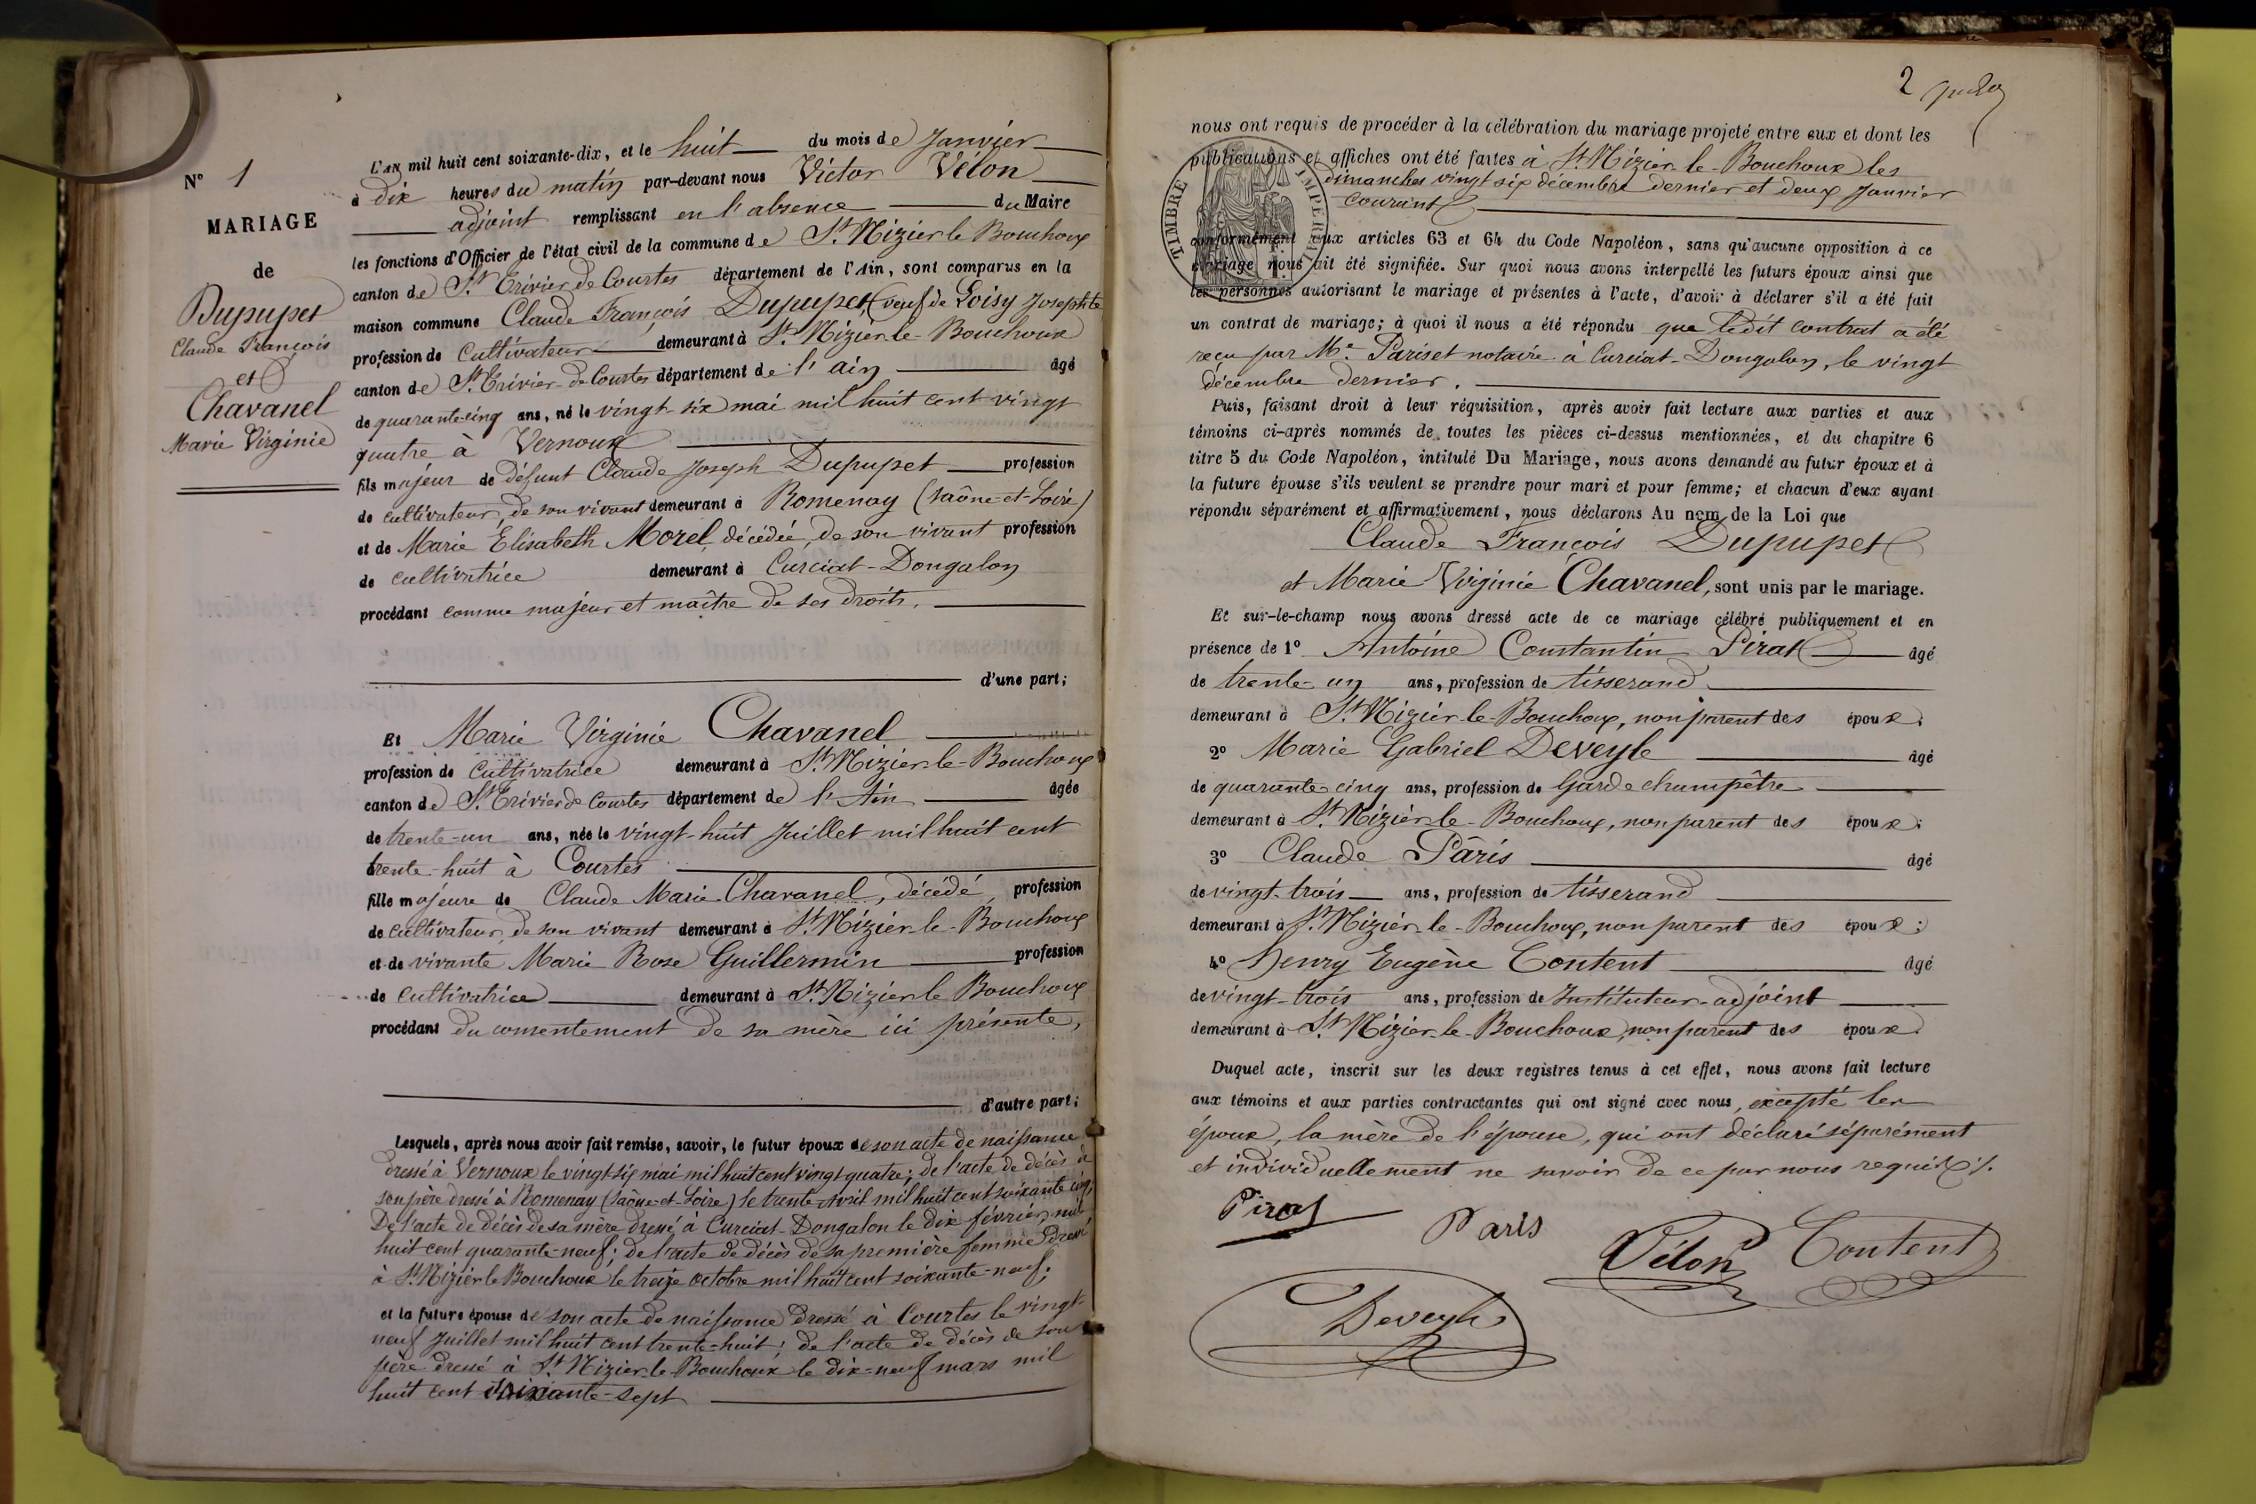 N° 1
MARIAGE
de
Dupupet
Claude François
et
Chavanel
Marie Virginie
L'AN mil huit cent soixante-dix, et le huit du mois de Janvier
à dix heures du matin par-devant nous Victor Vélon
adjoint remplissant en l'absence du Maire
les fonctions d'Officier de l'état civil de la commune de St Nizier le Bouchoux
canton de St Trivier de Courtes département de l'Ain, sont comparus en la
maison commune Claude François Dupupet, (veuf de Loisy Josephte
profession de Cultivateur demeurant à St Nizier-le-Bouchoux
canton de St Trivier-de Courtes département de l'ain âgé
de quarante-cinq ans, né le vingt-six mai mil huit cent vingt
quatre à Vernoux
fils majeur de défunt Claude Joseph Dupupet profession
de cultivateur, de son vivant demeurant à Romenay (Saône-et-Loire)
et de Marie Elisabeth Morel, décédée, de son vivant profession
de cultivatrice demeurant à Curciat-Dongalon
procédant comme majeur et maître de ses droits.
d'une part;
Et Marie Virginie Chavanel
profession de Cultivatrice demeurant à St Nizier-le-Bouchoux
canton de St Trivier de Courtes département de l'Ain âgée
de trente-un ans, née le vingt-huit Juillet mil huit cent
trente-huit à Courtes
fille majeure de Claude Marie Chavanel, décédé, profession
de cultivateur, de son vivant demeurant à St Nizier-le-Bouchoux
et de vivante Marie Rose Guillermin profession
de cultivatrice demeurant à St Nizier le Bouchoux
procédant du consentement de sa mère ici présente,
d'autre part;
Lesquels, après nous avoir fait remise, savoir, le futur époux de son acte de naissance
dressé à Vernoux le vingt-six mai mil huit cent vingt-quatre; de l'acte de décès de
son père dressé à Romenay (Saône-et-Loire) le trente Avril mil huit cent soixante cinq,
De l'acte de décès de sa mère dressé à Curciat-Dongalon le dix février mil
huit cent quarante-neuf; de l'acte de décès de sa première femme dressé
à St Nizier le Bouchoux le treize octobre mil huit cent soixante-neuf;
et la future épouse de son acte de naissance dressé à Courtes le vingt-
neuf Juillet mil huit cent trente-huit; de l'acte de décès de son
père dressé à St Nizier-le-Bouchoux le dix-neuf mars mil
huit cent soixante-sept
2
nous ont requis de procéder à la célébration du mariage projeté entre eux et dont les
publications et affiches ont été faites à St Nizier-le-Bouchoux les
dimanches vingt six décembre dernier et deux Janvier
courant
TIMBRE IMPÉRIAL
conformément aux articles 63 et 64 du Code Napoléon, sans qu'aucune opposition à ce
mariage nous ait été signifiée. Sur quoi nous avons interpellé les futurs époux ainsi que
les personnes autorisant le mariage et présentes à l'acte, d'avoir à déclarer s'il a été fait
un contrat de mariage; à quoi il nous a été répondu que ledit contrat a été
reçu par Me Pariset notaire à Curciat-Dongalon, le vingt
décembre dernier.
Puis, faisant droit à leur réquisition, après avoir fait lecture aux parties et aux
témoins ci-après nommés de toutes les pièces ci-dessus mentionnées, et du chapitre 6
titre 5 du Code Napoléon, intitulé Du Mariage, nous avons demandé au futur époux et à
la future épouse s'ils veulent se prendre pour mari et pour femme; et chacun d'eux ayant
répondu séparément et affirmativement, nous déclarons Au nom de la Loi que
Claude François Dupupet
et Marie Virginie Chavanel, sont unis par le mariage.
Et sur-le-champ nous avons dressé acte de ce mariage célébré publiquement et en
présence de 1° Antoine Constantin Pirat âgé
de trente-un ans, profession de tisserand
demeurant à St Nizier-le-Bouchoux, non parent des époux;
2° Marie Gabriel Deveyle âgé
de quarante cinq ans, profession de Garde champêtre
demeurant à St Nizier-le-Bouchoux, non parent des époux;
3° Claude Pâris âgé
de vingt-trois ans, profession de tisserand
demeurant à St Nizier-le-Bouchoux, non parent des époux;
4° Henry Eugène Content âgé
de vingt-trois ans, profession de Instituteur-adjoint
demeurant à St Nizier-le-Bouchoux, non parent des époux.
Duquel acte, inscrit sur les deux registres tenus à cet effet, nous avons fait lecture
aux témoins et aux parties contractantes qui ont signé avec nous, excepté les
époux, la mère de l'épouse, qui ont déclaré séparément
et individuellement ne savoir de ce par nous requis ./.
Pirat
Paris
Vélon
Content
Deveyle